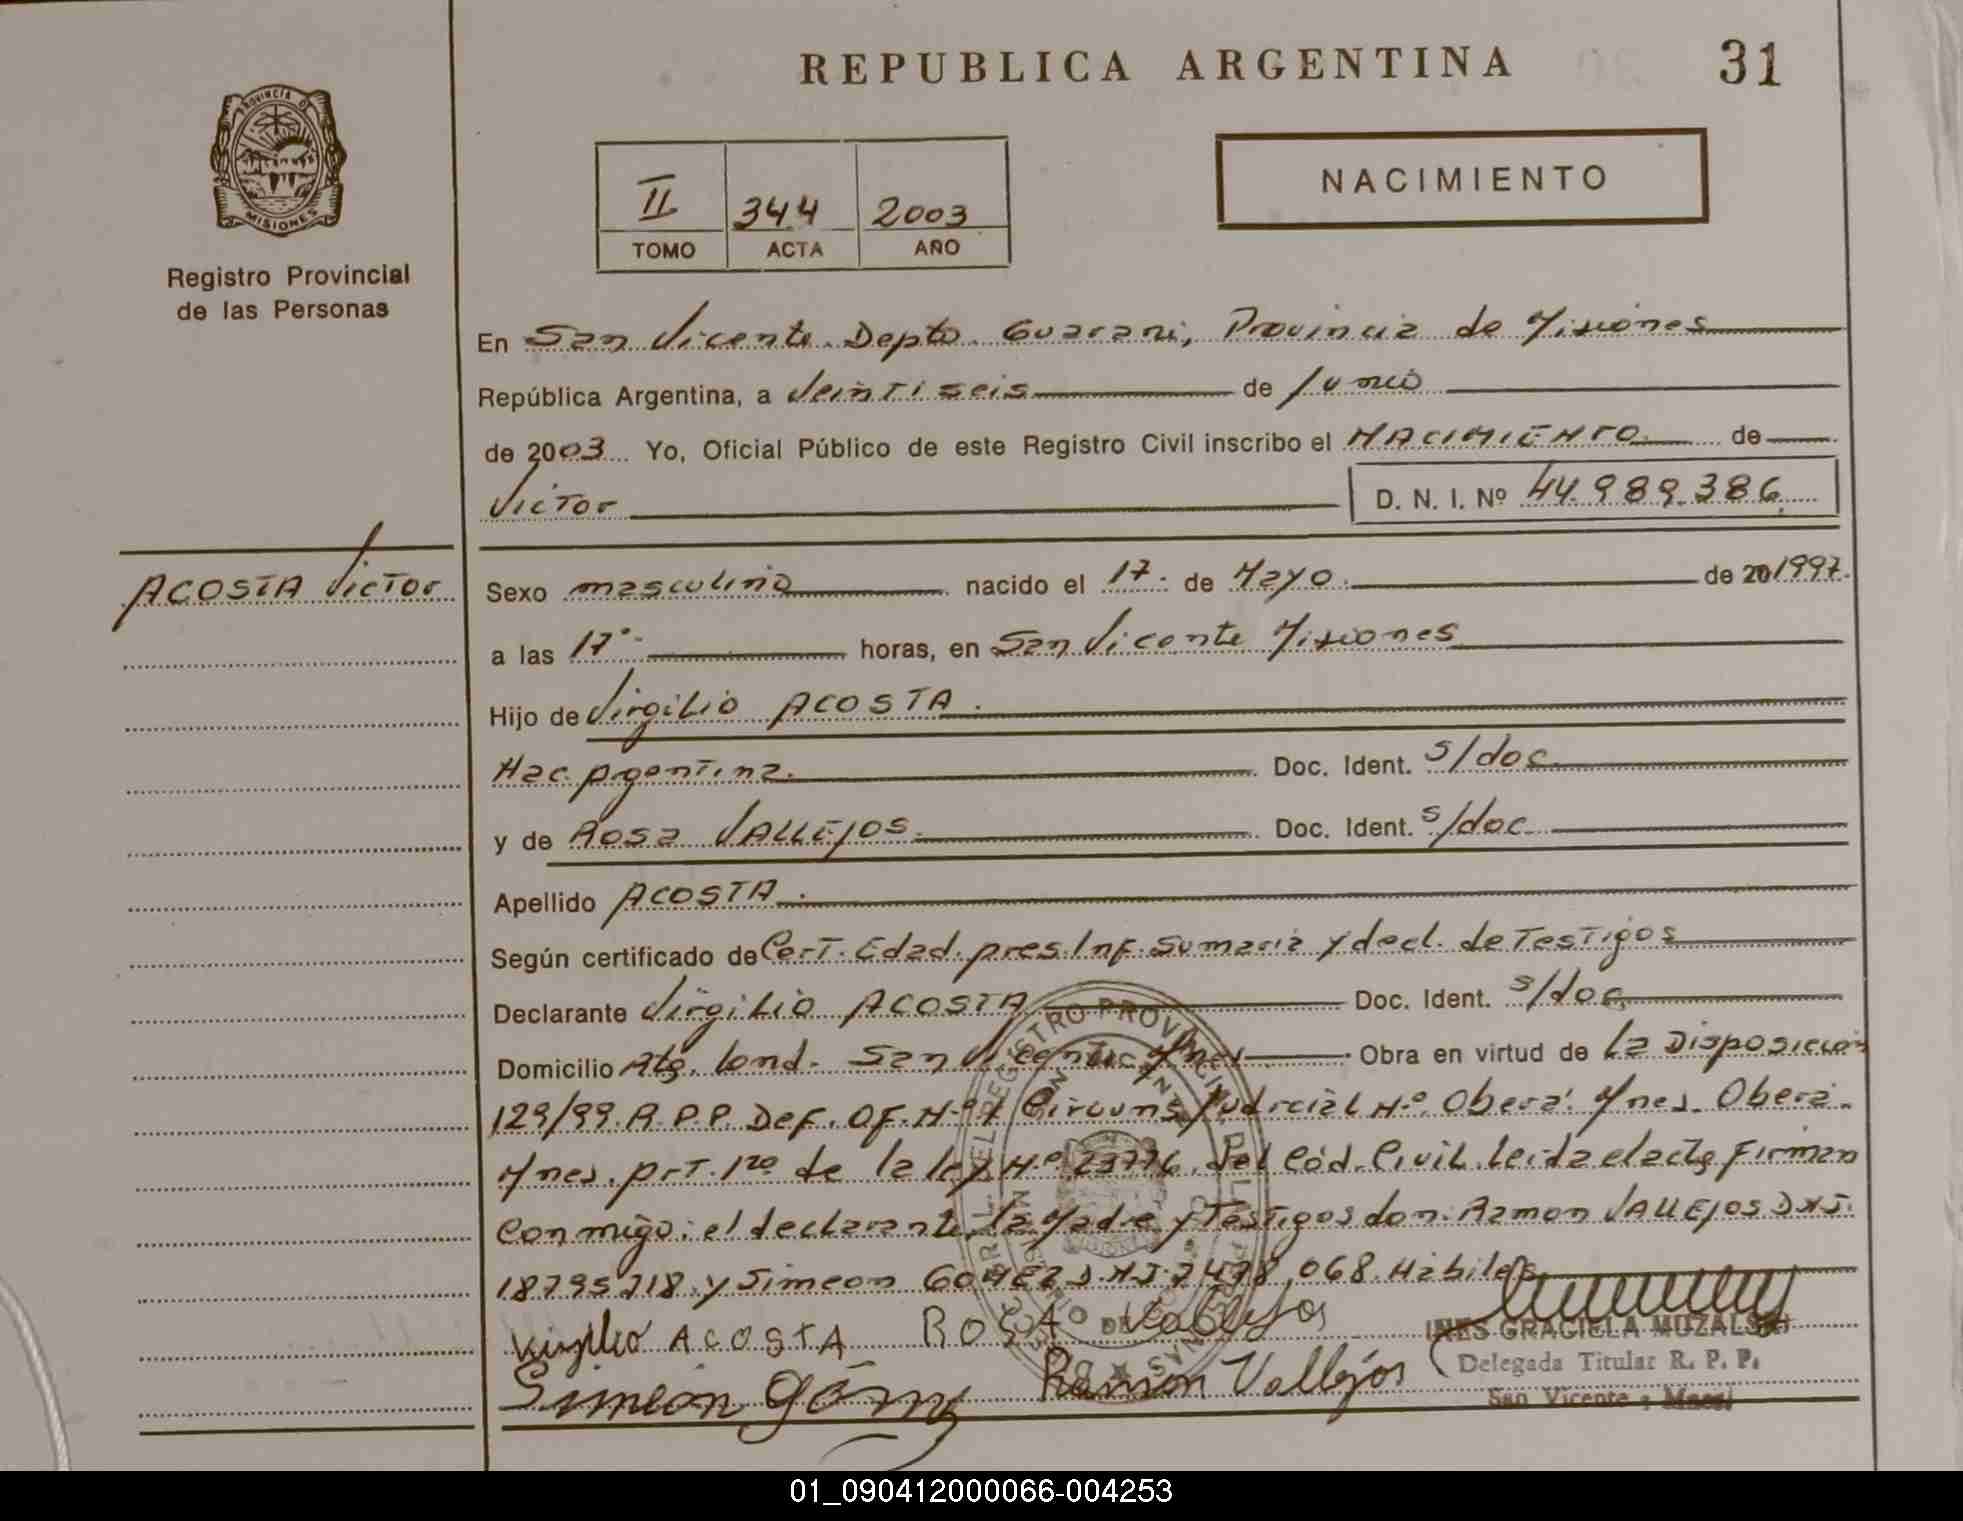 REPUBLICA ARGENTINA 31
PROVINCIA DE
MISIONES
Registro Provincial
de las Personas
II 344 2003
TOMO ACTA AÑO
NACIMIENTO
En San Vicente Depto. Guarani, Provincia de Misiones
República Argentina, a Veintiseis de Junio
de 2003 Yo, Oficial Público de este Registro Civil inscribo el NACIMIENTO de
Victor D. N. I. Nº 44.989.386
ACOSTA Victor
Sexo masculino nacido el 17 de Mayo de 20 1997
a las 17º horas, en San Vicente Misiones
Hijo de Virgilio ACOSTA
Nac. Argentina Doc. Ident. s/doc
y de Rosa VALLEJOS Doc. Ident. s/doc
Apellido ACOSTA
Según certificado de Cert. Edad. pres. Inf. Sumaria y decl. de Testigos
Declarante Virgilio ACOSTA Doc. Ident. s/doc
Domicilio Lond. San Vicente Mnes Obra en virtud de La Disposicion
129/99. R.P.P. Def. Of. Nº 1 Circuns Judicial Nº Obera. Mnes. Obera.
Mnes. Art. 1º de la ley Nº 23776 del Cód. Civil. Leida el acta Firman
Conmigo: el declarante, la Madre y Testigos don: Ramon VALLEJOS DNI.
18795218 y Simeon GOMEZ DNI 7478,068 Habiles
Virgilio ACOSTA ROSA Vallejos
INES GRACIELA MUZALSKI
Simeon Gómez Ramon Vallejos
Delegada Titular R. P. P.
San Vicente - Mnes.
01_090412000066-004253